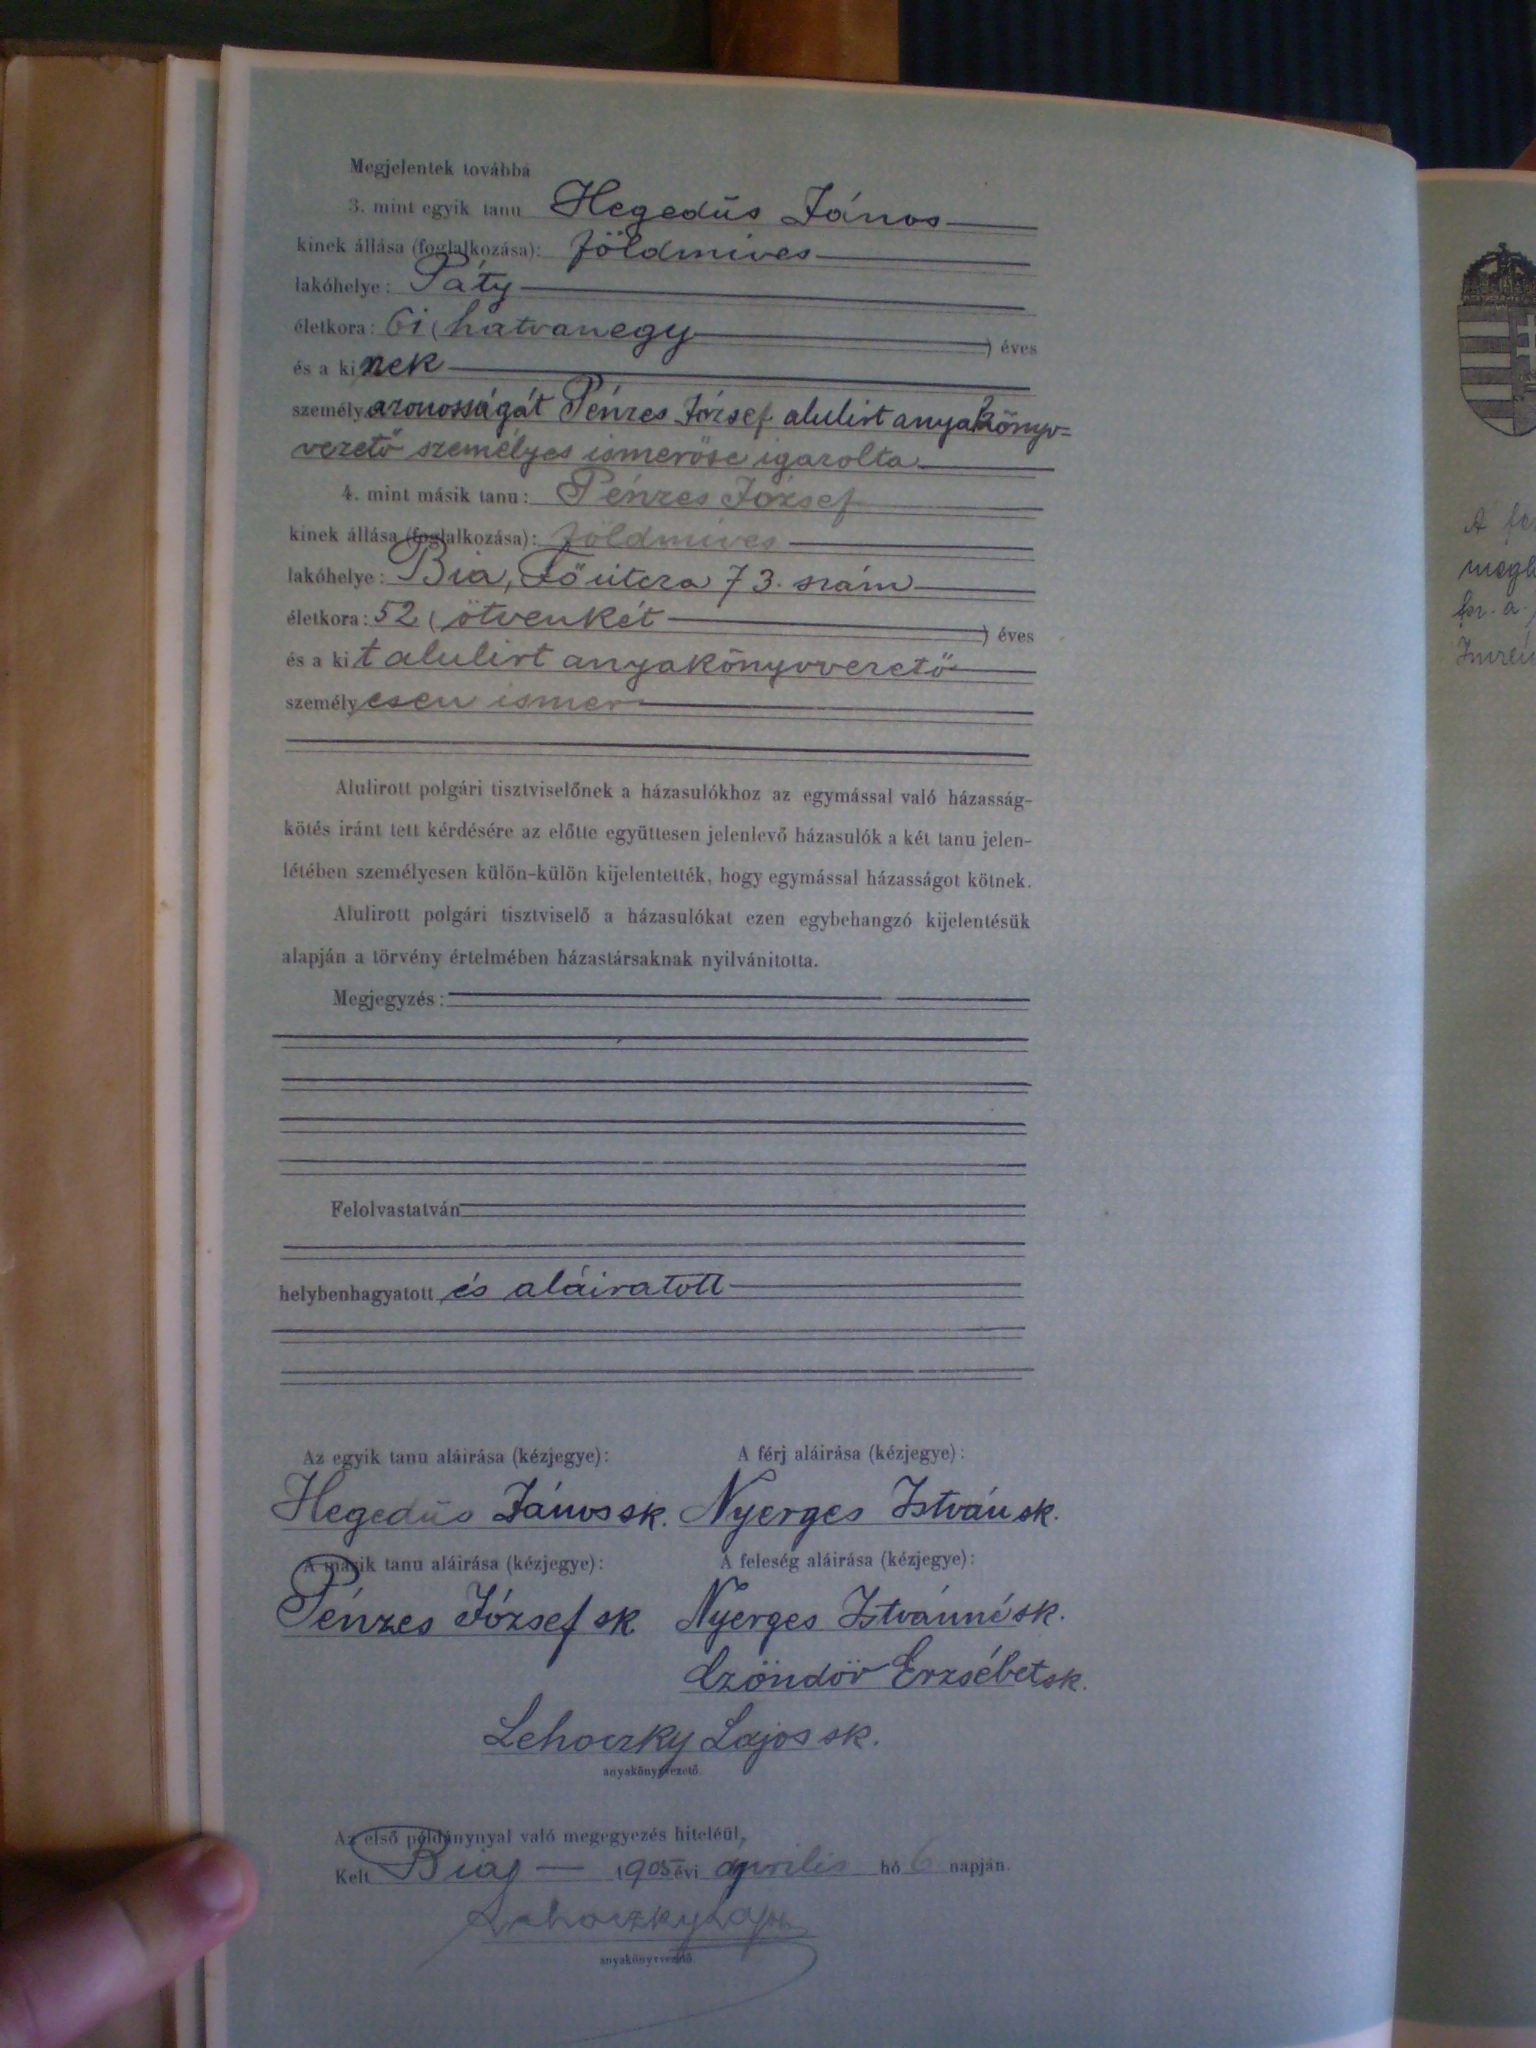 Megjelentek továbbá
3. mint egyik tanu Hegedüs János
kinek állása (foglalkozása): földmives
lakóhelye: Páty
életkora: 61 (hatvanegy) éves
és a kinek
személyazonosságát Pénzes József alulirt anyakönyv=
vezető személyes ismerőse igazolta
4. mint másik tanu: Pénzes József
kinek állása (foglalkozása): földmives
lakóhelye: Bia, Főutcza 73. szám
életkora: 52 (ötvenkét) éves
és a kit alulirt anyakönyvvezető
személyesen ismer
Alulirott polgári tisztviselőnek a házasulókhoz az egymással való házasság-
kötés iránt tett kérdésére az előtte együttesen jelenlevő házasulók a két tanu jelen-
létében személyesen külön-külön kijelentették, hogy egymással házasságot kötnek.
Alulirott polgári tisztviselő a házasulókat ezen egybehangzó kijelentésük
alapján a törvény értelmében házastársaknak nyilvánitotta.
Megjegyzés:
Felolvastatván
helybenhagyatott és aláiratott
Az egyik tanu aláirása (kézjegye): A férj aláirása (kézjegye):
Hegedüs János sk. Nyerges István sk.
A másik tanu aláirása (kézjegye): A feleség aláirása (kézjegye):
Pénzes József sk Nyerges Istvánné sk.
Czöndör Erzsébet sk.
Lehoczky Lajos sk.
anyakönyvvezető.
Az első példánynyal való megegyezés hiteléül,
Kelt Bia, 1905 évi április hó 6 napján.
Lehoczky Lajos
anyakönyvvezető
A
Imren